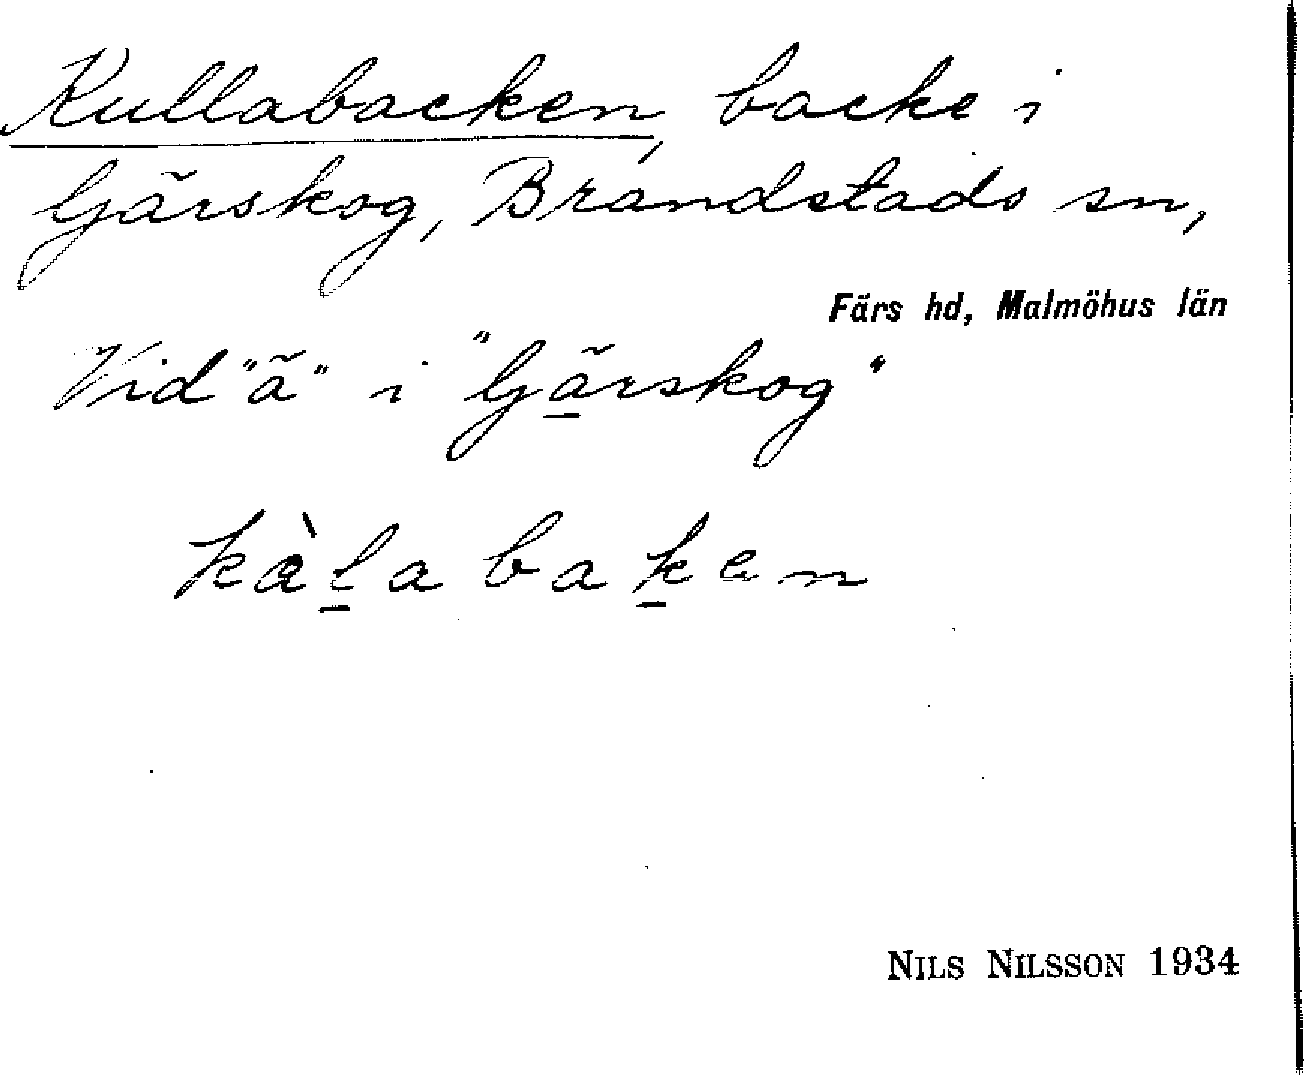 Kullabacken, backe i
Gärskog, Brandstads sn,
Färs hd, Malmöhus län
Vid "ä" i "Gärskog"
kàl̠abak̠en
NILS NILSSON 1934